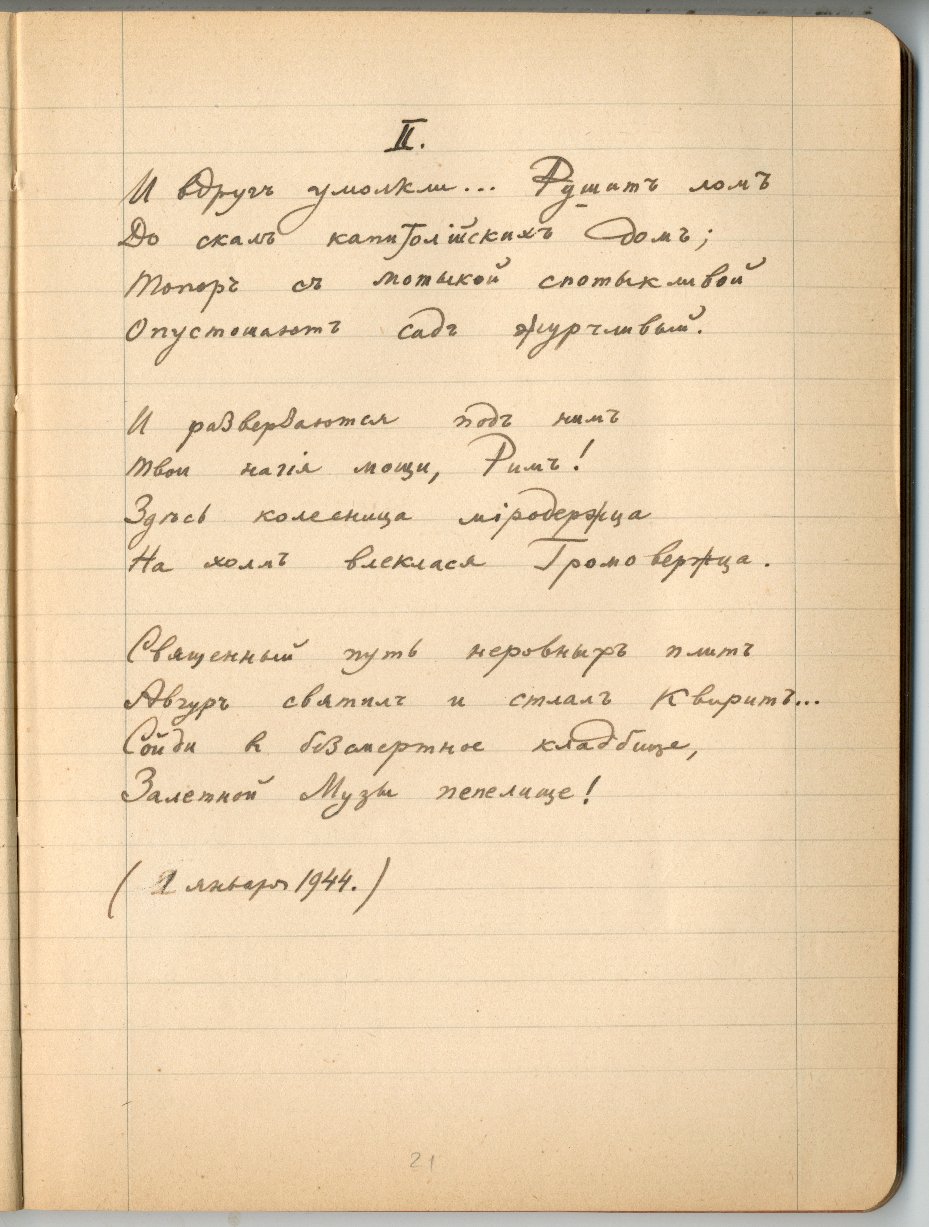 II.
И вдругъ умолкли... Рушитъ ломъ
До скалъ капитолійскихъ домъ;
Топоръ съ мотыкой спотыкливой
Опустошаютъ садъ журчливый.
И разверзаются подъ нимъ
Твои нагія мощи, Римъ!
Здѣсь колесница міродержца
На холмъ влеклася Громовержца.
Священный путь неровныхъ плитъ
Авгуръ святилъ и стлалъ Квиритъ...
Сойди в безсмертное кладбище,
Залетной Музы пепелище!
(1 января 1944.)
21